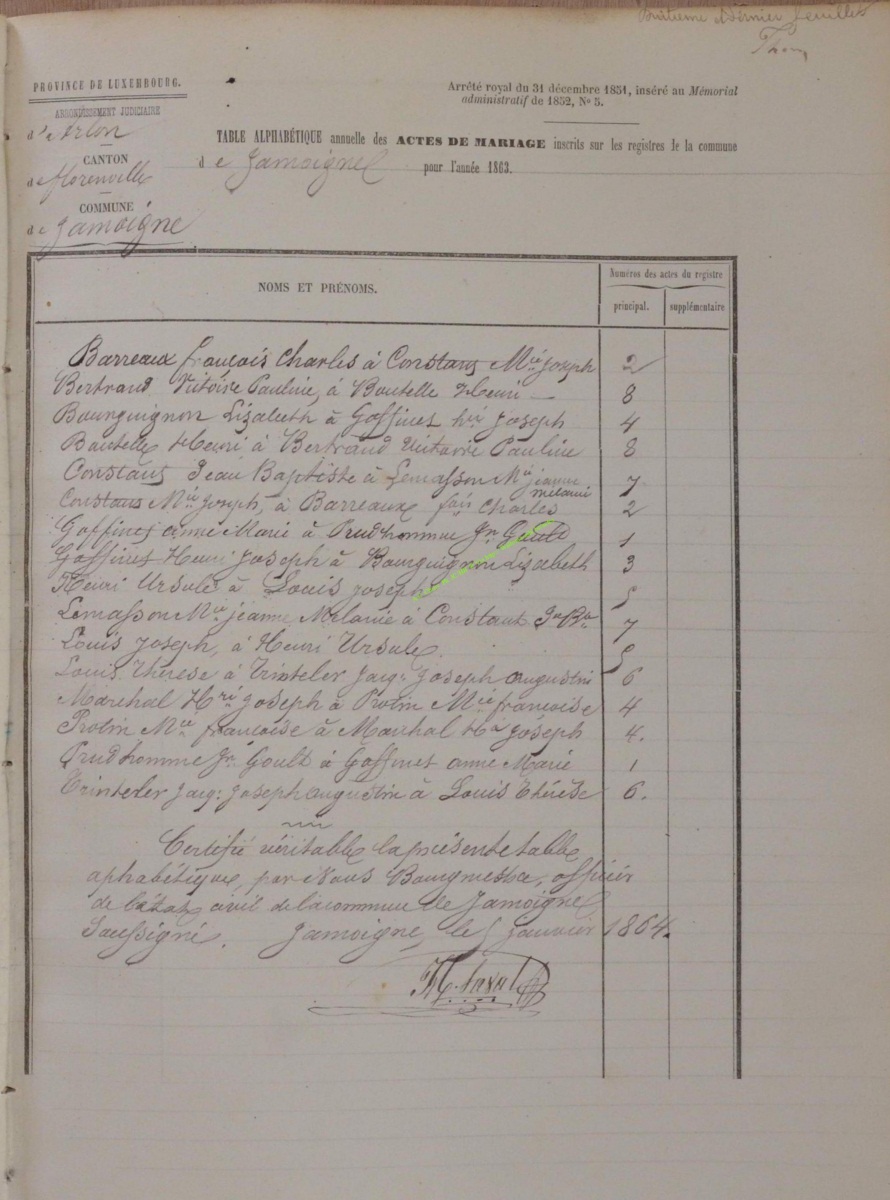 huitieme & dernier feuillet
PROVINCE DE LUXEMBOURG.
ARRONDISSEMENT JUDICIAIRE
d'Arlon
CANTON
de florenville
COMMUNE
de Jamoigne
Arrêté royal du 31 décembre 1851, inséré au Mémorial
administratif de 1852, No 5.
TABLE ALPHABÉTIQUE annuelle des ACTES DE MARIAGE inscrits sur les registres de la commune
de Jamoigne pour l'année 1863.
NOMS ET PRÉNOMS.
Numéros des actes du registre
principal. supplémentaire
Barreaux françois Charles à Constant Mie Joseph 2
Bertrand Victoire Pauline, à Boutelle Henri — 8
Bourguignon Lizabeth à Goffinet hri Joseph 4
Boutelle Henri, à Bertrand Victoire Pauline 8
Constant Jean Baptiste à Lemasson Mie jeanne melanie 7
Constant Mie Joseph, à Barreaux fois Charles 2
Goffinet anne Marie à Prudhomme Jn Goult 1
Goffinet Henri Joseph à Bourguignon Lizabeth 3
Henri Ursule à Louis joseph 5
Lemasson Mie jeanne Melanie à Constant Jn Bte 7
Louis Joseph, à Henri Ursule. 5
Louis Thérèse à Trinteler Jacq. Joseph augustin 6
Maréhal Hri Joseph à Protin Mie françoise 4
Protin Mie françoise à Maréhal Hri Joseph 4.
Prudhomme Jn Goult à Goffinet anne Marie 1
Trinteler Jacq. Joseph augustin à Louis Thérèse 6.
Certifié véritable la présente table
aphabétique, par Nous Bourgmestre, officier
de l'état civil de la commune de Jamoigne
Soussigné. Jamoigne, le 5 janvier 1864.